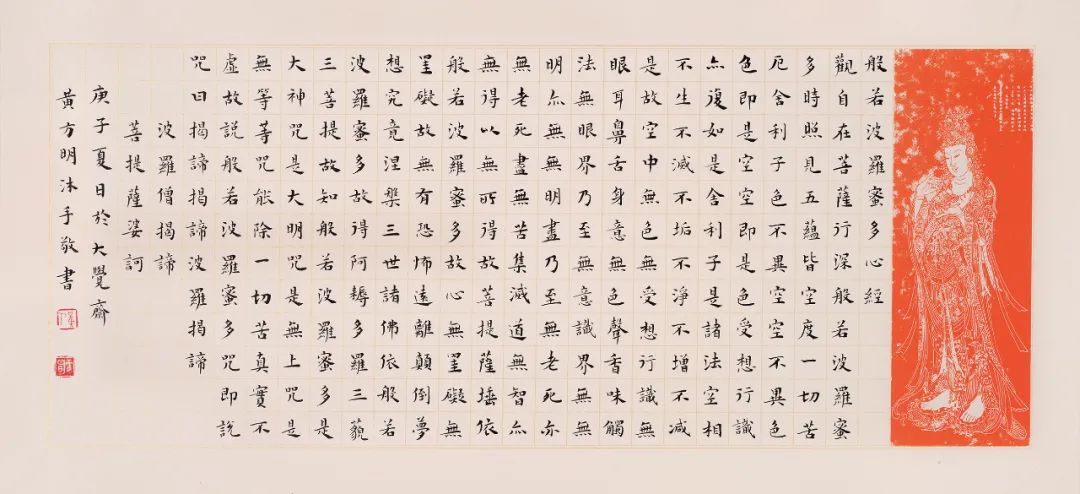 般若波羅蜜多心經
觀自在菩薩行深般若波羅蜜
多時照見五蘊皆空度一切苦
厄舍利子色不異空空不異色
色即是空空即是色受想行識
亦復如是舍利子是諸法空相
不生不滅不垢不淨不增不減
是故空中無色無受想行識無
眼耳鼻舌身意無色聲香味觸
法無眼界乃至無意識界無無
明亦無無明盡乃至無老死亦
無老死盡無苦集滅道無智亦
無得以無所得故菩提薩埵依
般若波羅蜜多故心無罣礙無
罣礙故無有恐怖遠離顛倒夢
想究竟涅槃三世諸佛依般若
波羅蜜多故得阿耨多羅三藐
三菩提故知般若波羅蜜多是
大神咒是大明咒是無上咒是
無等等咒能除一切苦真實不
虛故說般若波羅蜜多咒即說
咒曰揭諦揭諦波羅揭諦
波羅僧揭諦
菩提薩婆訶
庚子夏日於大覺齋
黃方明沐手敬書